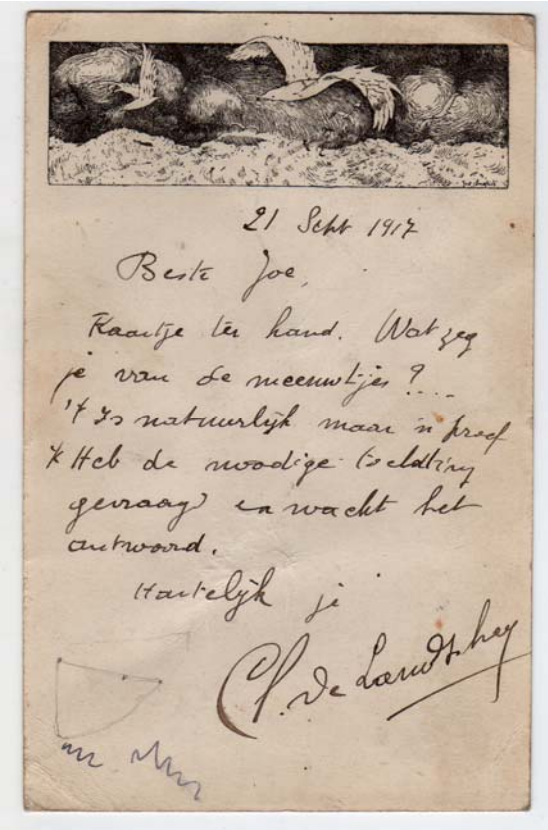 21 Sept 1917
Beste Joe,
Kaartje ter hand. Wat zeg
je van de meeuwtjes ?....
't Is natuurlijk maar 'n proef
k Heb de noodige toelating
gevraagd en wacht het
antwoord.
Hartelijk je
Cl. De Landtsheer